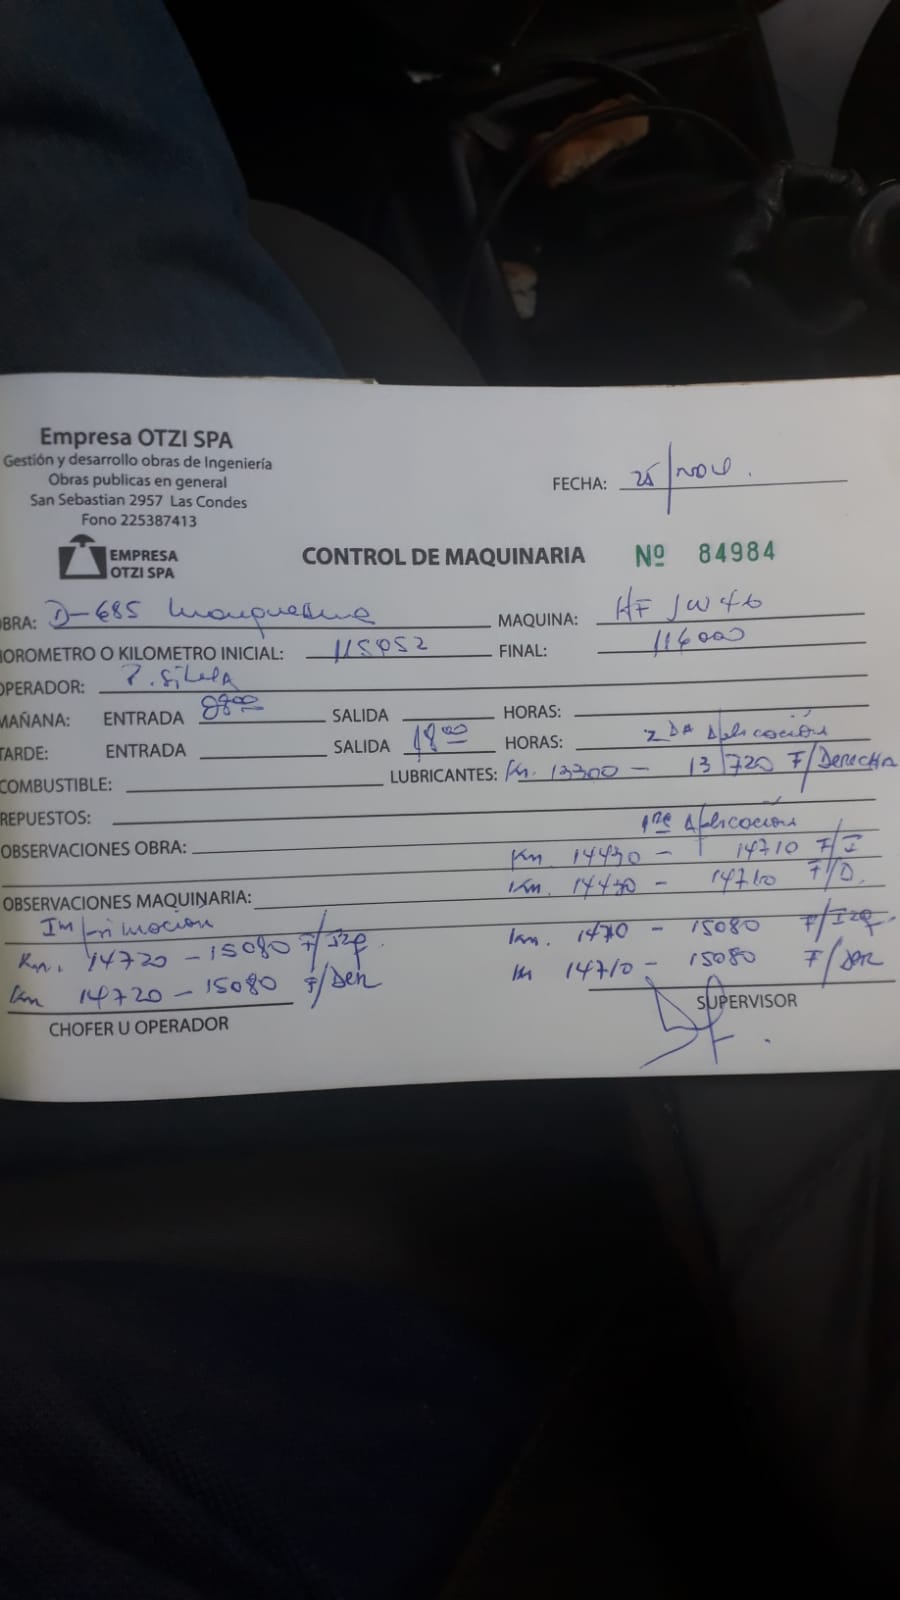 Empresa OTZI SPA
Gestión y desarrollo obras de Ingeniería
Obras publicas en general
San Sebastian 2957 Las Condes
Fono 225387413
FECHA: 25/Nov.
EMPRESA
OTZI SPA
CONTROL DE MAQUINARIA Nº 84984
OBRA: D-685
MAQUINA: HF JW 46
HOROMETRO O KILOMETRO INICIAL: 115952 FINAL: 116000
OPERADOR: P. Silva
MAÑANA: ENTRADA 08:00 SALIDA HORAS:
TARDE: ENTRADA SALIDA 18:00 HORAS: 2DA Aplicación
COMBUSTIBLE: LUBRICANTES: Km. 13300 - 13720 F/Derecha
REPUESTOS:
1ra Aplicación
OBSERVACIONES OBRA:
Km 14430 - 14710 F/I
Km. 14430 - 14710 F/D.
OBSERVACIONES MAQUINARIA:
Imprimación
Km. 14720 - 15080 F/Izq.
Km 14720 - 15080 F/Der
Km. 1470 - 15080 F/Izq.
Km 14710 - 15080 F/Der
CHOFER U OPERADOR
SUPERVISOR